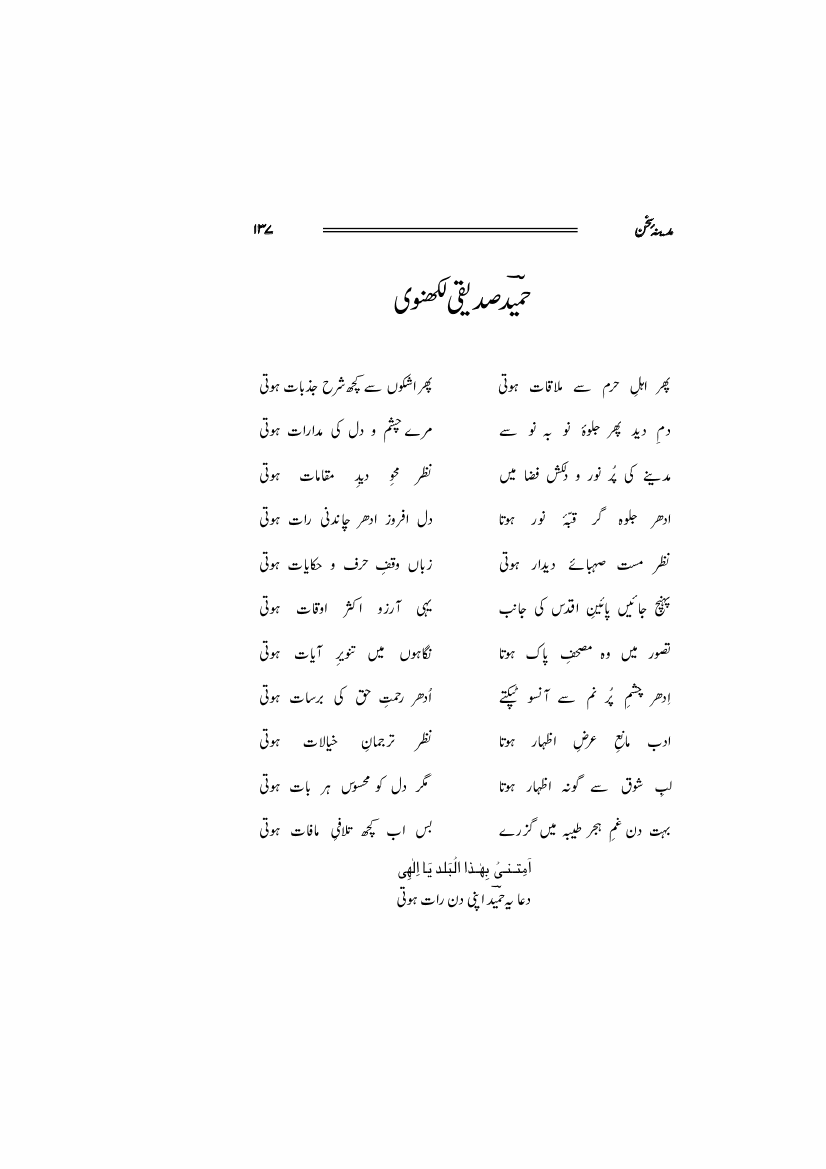 مدینۂ سخن ۱۳۷
حمیدؔ صدیقی لکھنوی
پھر اہلِ حرم سے ملاقات ہوتی پھر اشکوں سے کچھ شرح جذبات ہوتی
دمِ دید پھر جلوۂ نو بہ نو سے مرے چشم و دل کی مدارات ہوتی
مدینے کی پُر نور و دلکش فضا میں نظر محوِ دیدِ مقامات ہوتی
ادھر جلوہ گر قبّۂ نور ہوتا دل افروز ادھر چاندنی رات ہوتی
نظر مست صہبائے دیدار ہوتی زباں وقفِ حرف و حکایات ہوتی
پہنچ جائیں پائینِ اقدس کی جانب یہی آرزو اکثر اوقات ہوتی
تصور میں وہ مصحفِ پاک ہوتا نگاہوں میں تنویرِ آیات ہوتی
اِدھر چشمِ پُر نم سے آنسو ٹپکتے اُدھر رحمتِ حق کی برسات ہوتی
ادب مانعِ عرضِ اظہار ہوتا نظر ترجمانِ خیالات ہوتی
لبِ شوق سے گونہ اظہار ہوتا مگر دل کو محسوس ہر بات ہوتی
بہت دن غمِ ہجر طیبہ میں گزرے بس اب کچھ تلافیِ مافات ہوتی
اَمِتـنـیُ بِھٰـذا الُبَلد یَا اِلٰھِی
دعا یہ حمیدؔ اپنی دن رات ہوتی